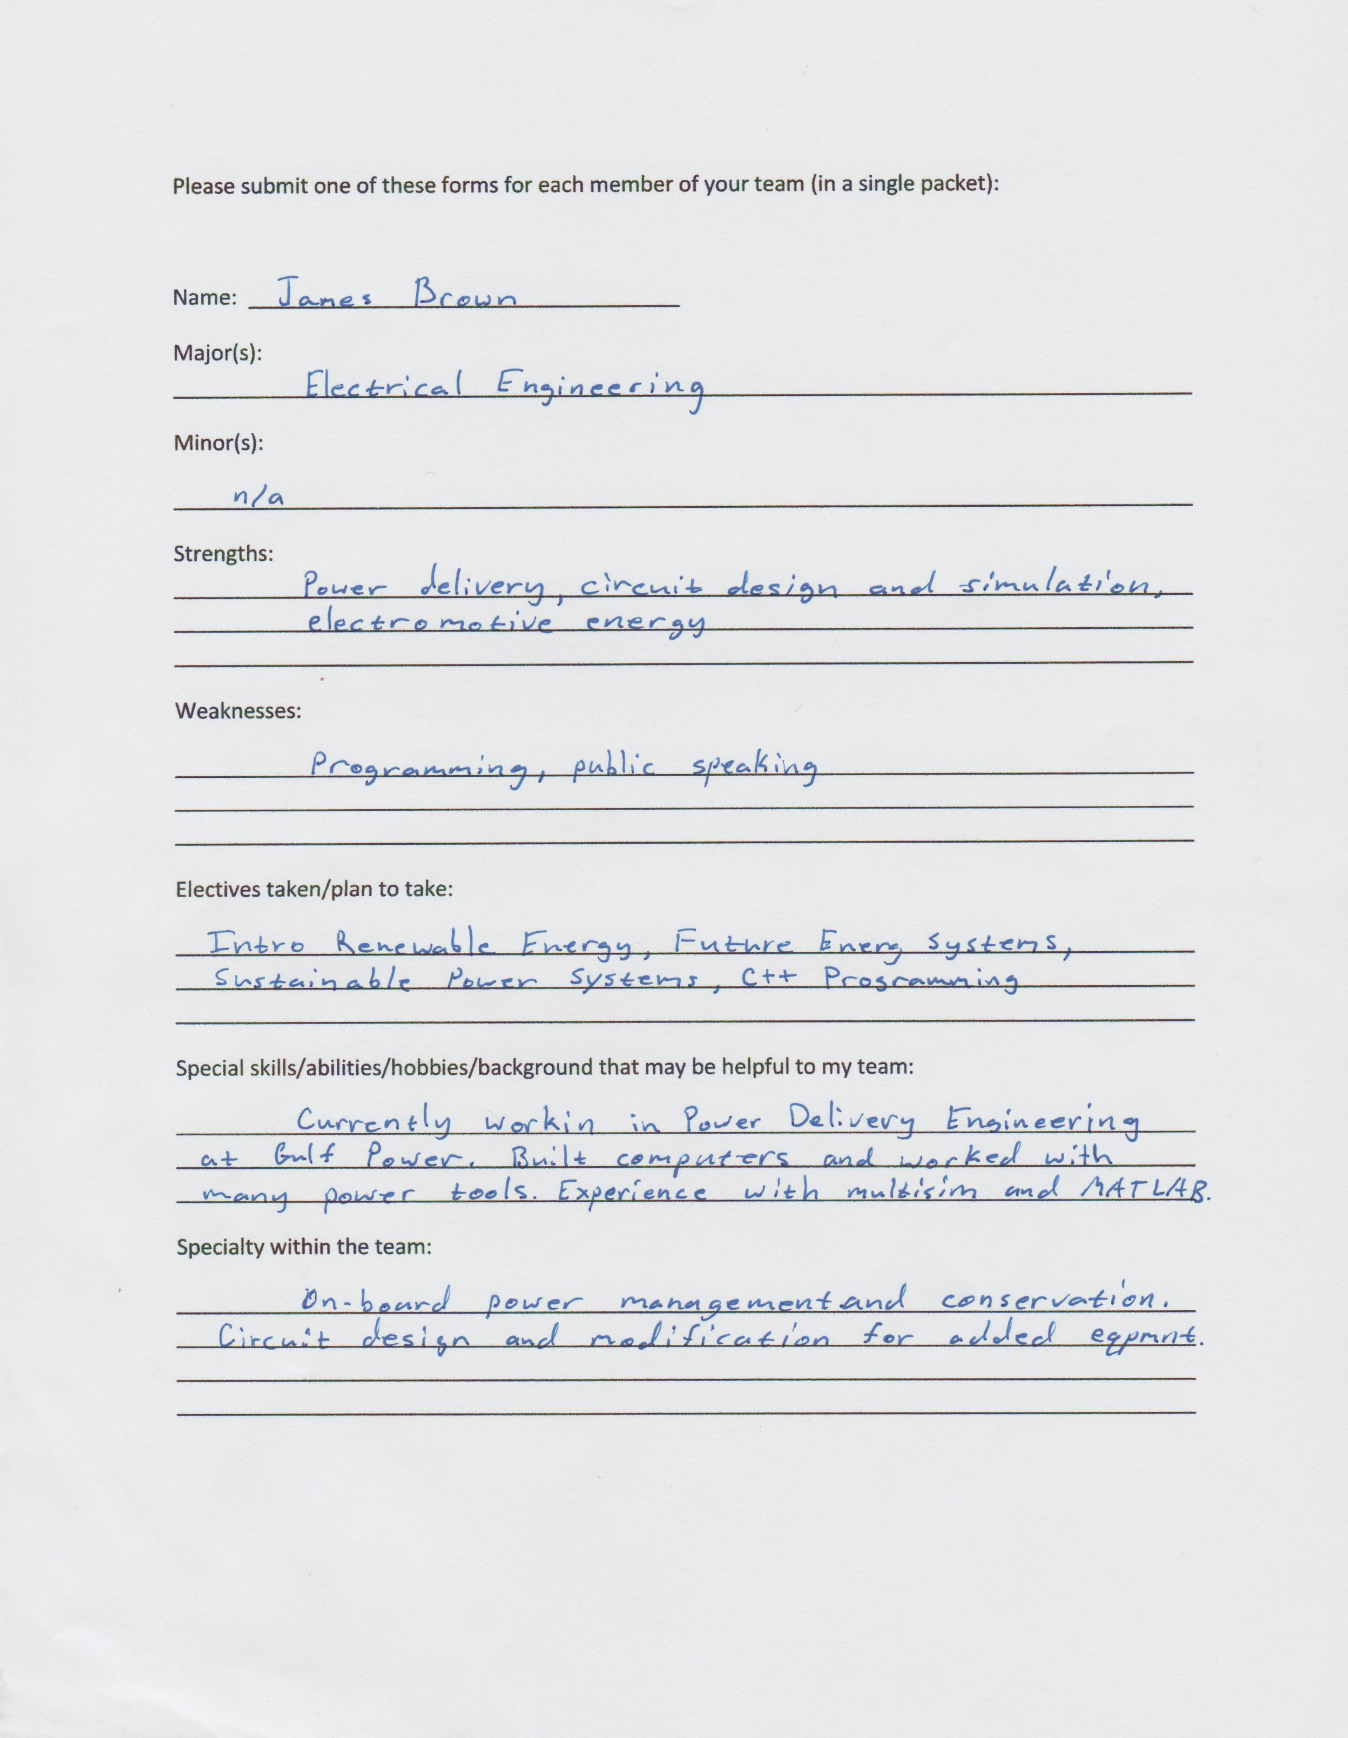 Please submit one of these forms for each member of your team (in a single packet):
Name: James Brown
Major(s):
Electrical Engineering
Minor(s):
n/a
Strengths:
Power delivery, circuit design and simulation,
electromotive energy
Weaknesses:
Programming, public speaking
Electives taken/plan to take:
Intro Renewable Energy, Future Energ Systems,
Sustainable Power Systems, C++ Programming
Special skills/abilities/hobbies/background that may be helpful to my team:
Currently workin in Power Delivery Engineering
at Gulf Power. Built computers and worked with
many power tools. Experience with multisim and MATLAB.
Specialty within the team:
On-board power management and conservation.
Circuit design and modification for added eqpmnt.